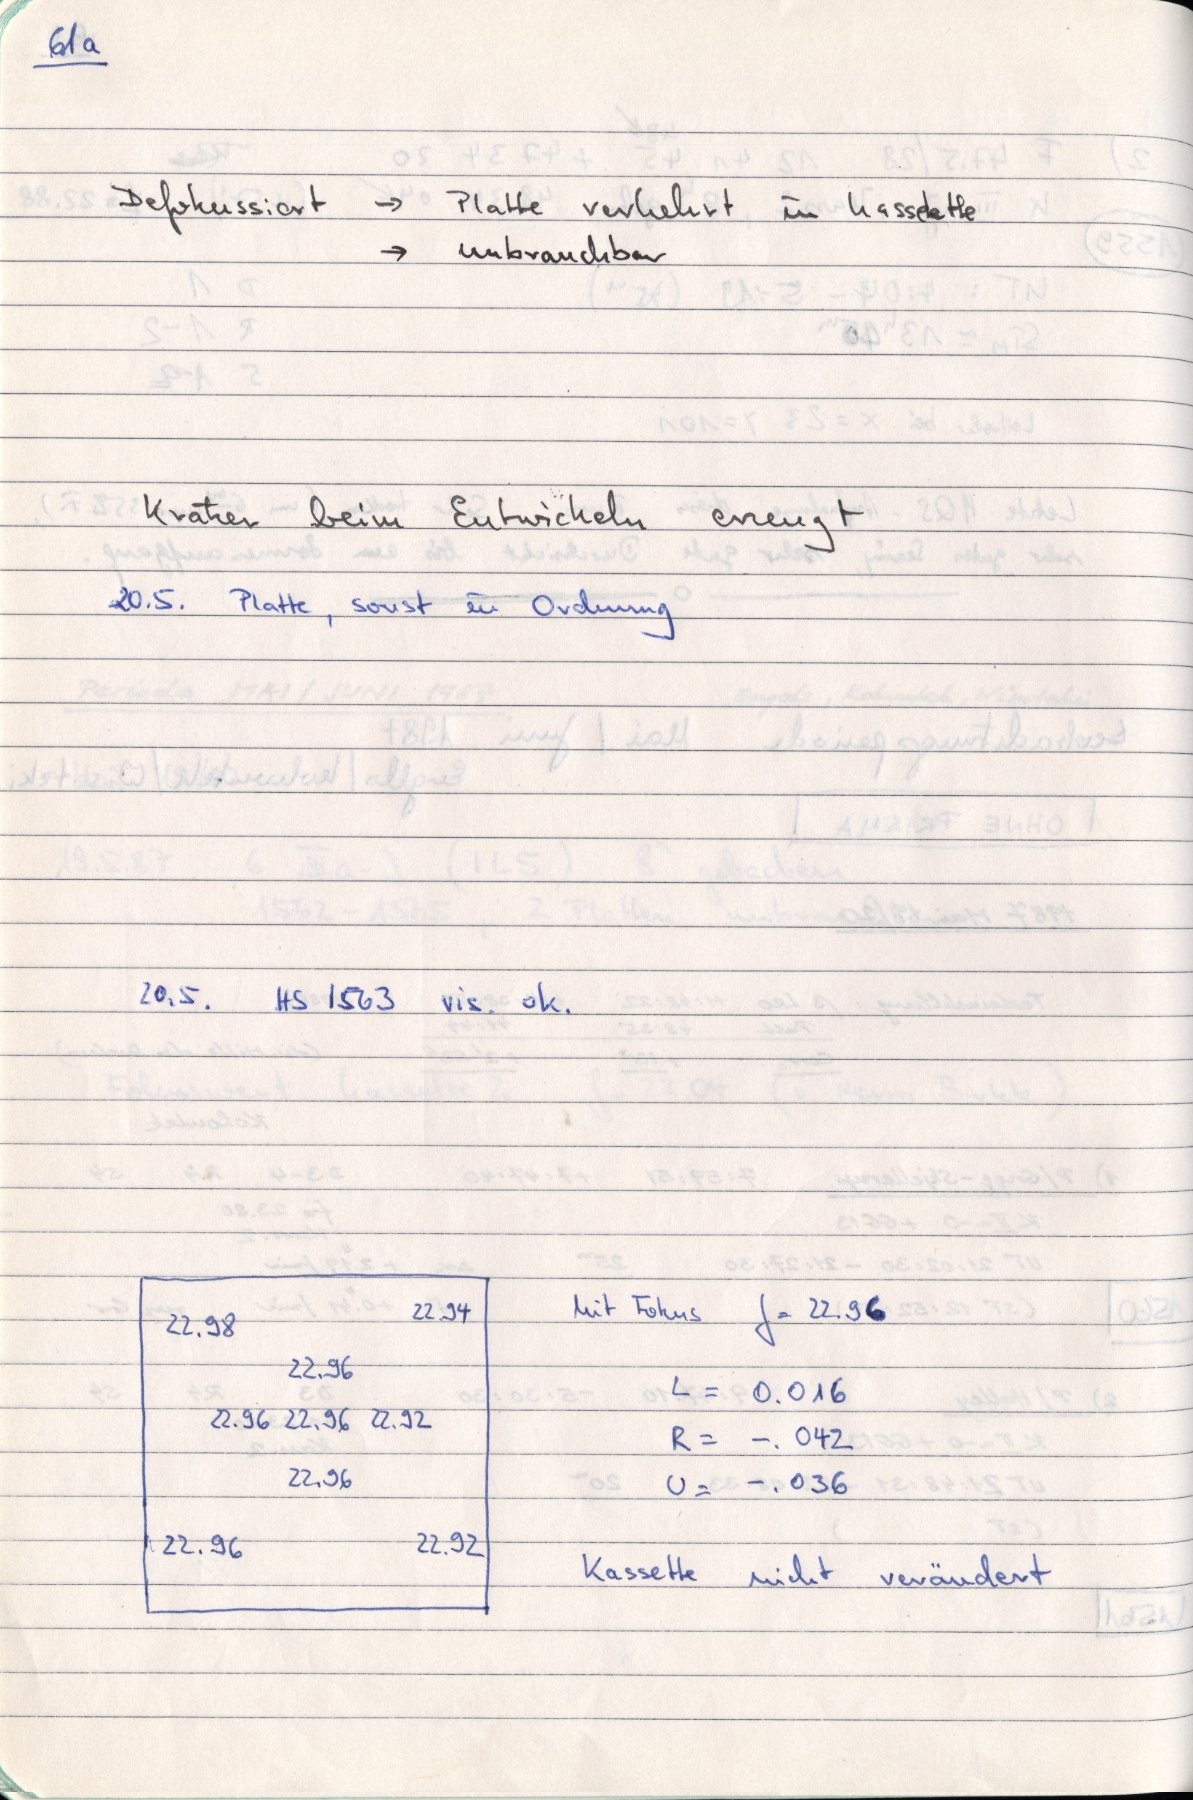 61a
Defokussiert → Platte verkehrt in Kassette
→ unbrauchbar
Krater beim Entwickeln erzeugt
20.5. Platte, sonst in Ordnung
20.5. HS 1563 vis. ok.
22.98 22.94
22.96
22.96 22.96 22.92
22.96
22.96 22.92
Mit Fokus f = 22.96
L = 0.016
R = -.042
U = -.036
Kassette nicht verändert